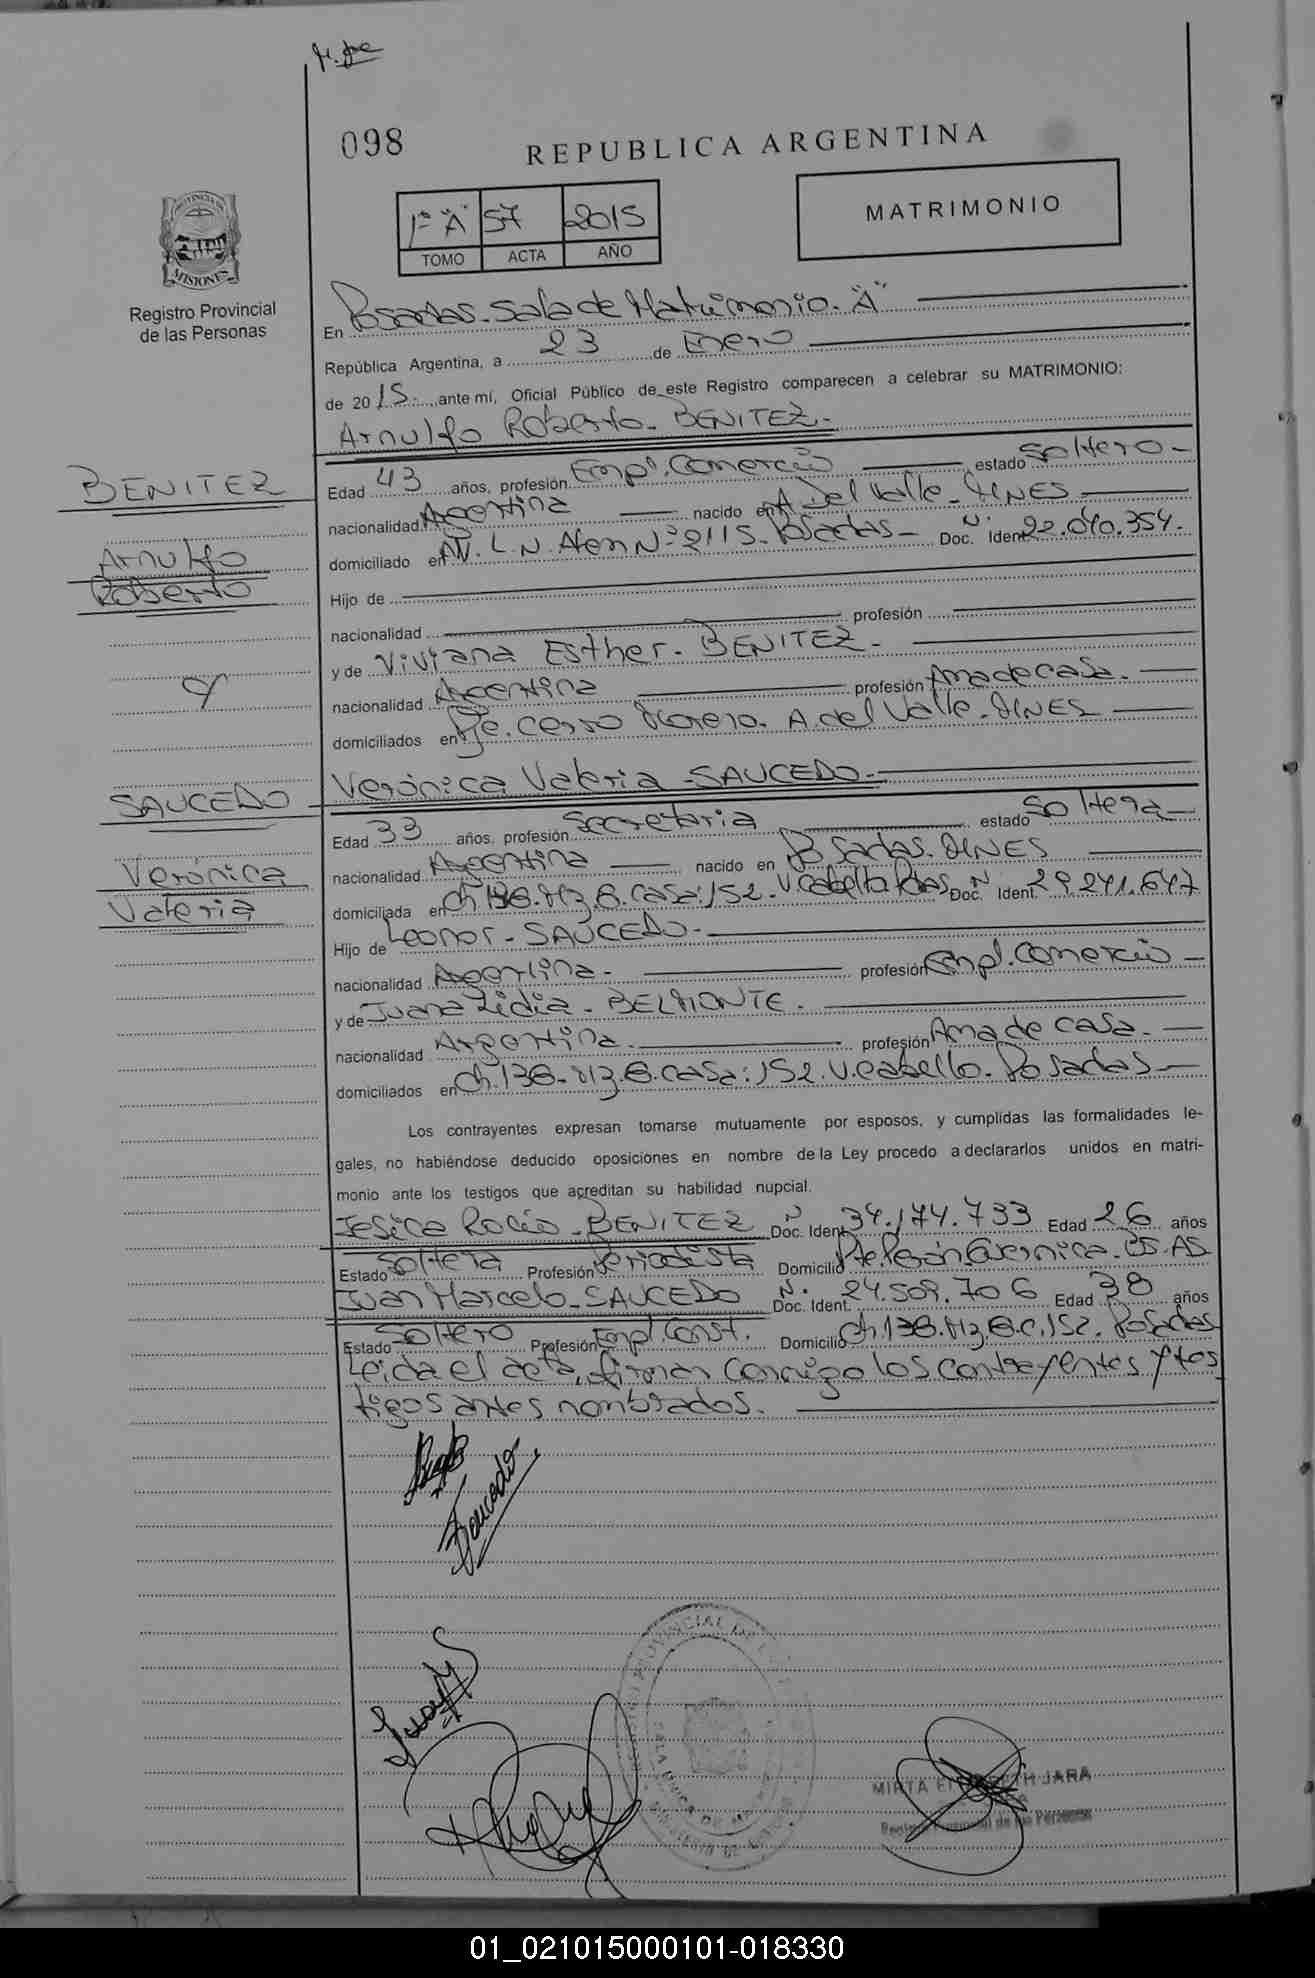 098
REPUBLICA ARGENTINA
MATRIMONIO
1º "A" 57 2015
TOMO ACTA AÑO
PROVINCIA DE
MISIONES
Registro Provincial
de las Personas
En Posadas. Sala de Matrimonio. "A"
República Argentina, a 23 de Enero
de 2015. ante mí, Oficial Público de este Registro comparecen a celebrar su MATRIMONIO:
Arnulfo Roberto. BENITEZ.
BENITEZ
Arnulfo
Roberto
y
SAUCEDO
Verónica
Valeria
Edad 43 años, profesión Empl. Comercio estado Soltero
nacionalidad Argentina nacido en A. Del Valle. MNES
domiciliado en Av. L. N. Alem Nº 2115. Posadas Doc. Ident. Nº 22.040.354.
Hijo de
nacionalidad profesión
y de Viviana Esther. BENITEZ.
nacionalidad Argentina profesión Ama de casa.
domiciliados en Pje. Cerro Moreno. A. del Valle. MNES
Verónica Valeria SAUCEDO.
Edad 33 años, profesión Secretaria estado Soltera
nacionalidad Argentina nacido en Posadas. MNES
domiciliada en Ch. 138. Mz. B. Casa: 152. V. Cabello Pdas Doc. Ident. Nº 29.241.647
Hijo de Leonor. SAUCEDO.
nacionalidad Argentina. profesión Empl. Comercio
y de Juana Lidia. BELMONTE.
nacionalidad Argentina. profesión Ama de casa.
domiciliados en Ch. 138. Mz. B. Casa: 152. V. Cabello. Posadas
Los contrayentes expresan tomarse mutuamente por esposos, y cumplidas las formalidades le-
gales, no habiéndose deducido oposiciones en nombre de la Ley procedo a declararlos unidos en matri-
monio ante los testigos que acreditan su habilidad nupcial.
Jesica Rocío. BENITEZ Doc. Ident. Nº 34.174.733 Edad 26 años
Estado Soltera Profesión Periodista Domicilio Pte. Perón Guernica. BS. AS
Juan Marcelo. SAUCEDO Doc. Ident. Nº 24.509.706 Edad 38 años
Estado Soltero Profesión Empl. Const. Domicilio Ch. 138. Mz. B. C. 152. Posadas
Leida el acta, firman conmigo los contrayentes y tes
tigos antes nombrados.
Saucedo
MIRTA ELIZABETH JARA
Registro Provincial de las Personas
01_021015000101-018330